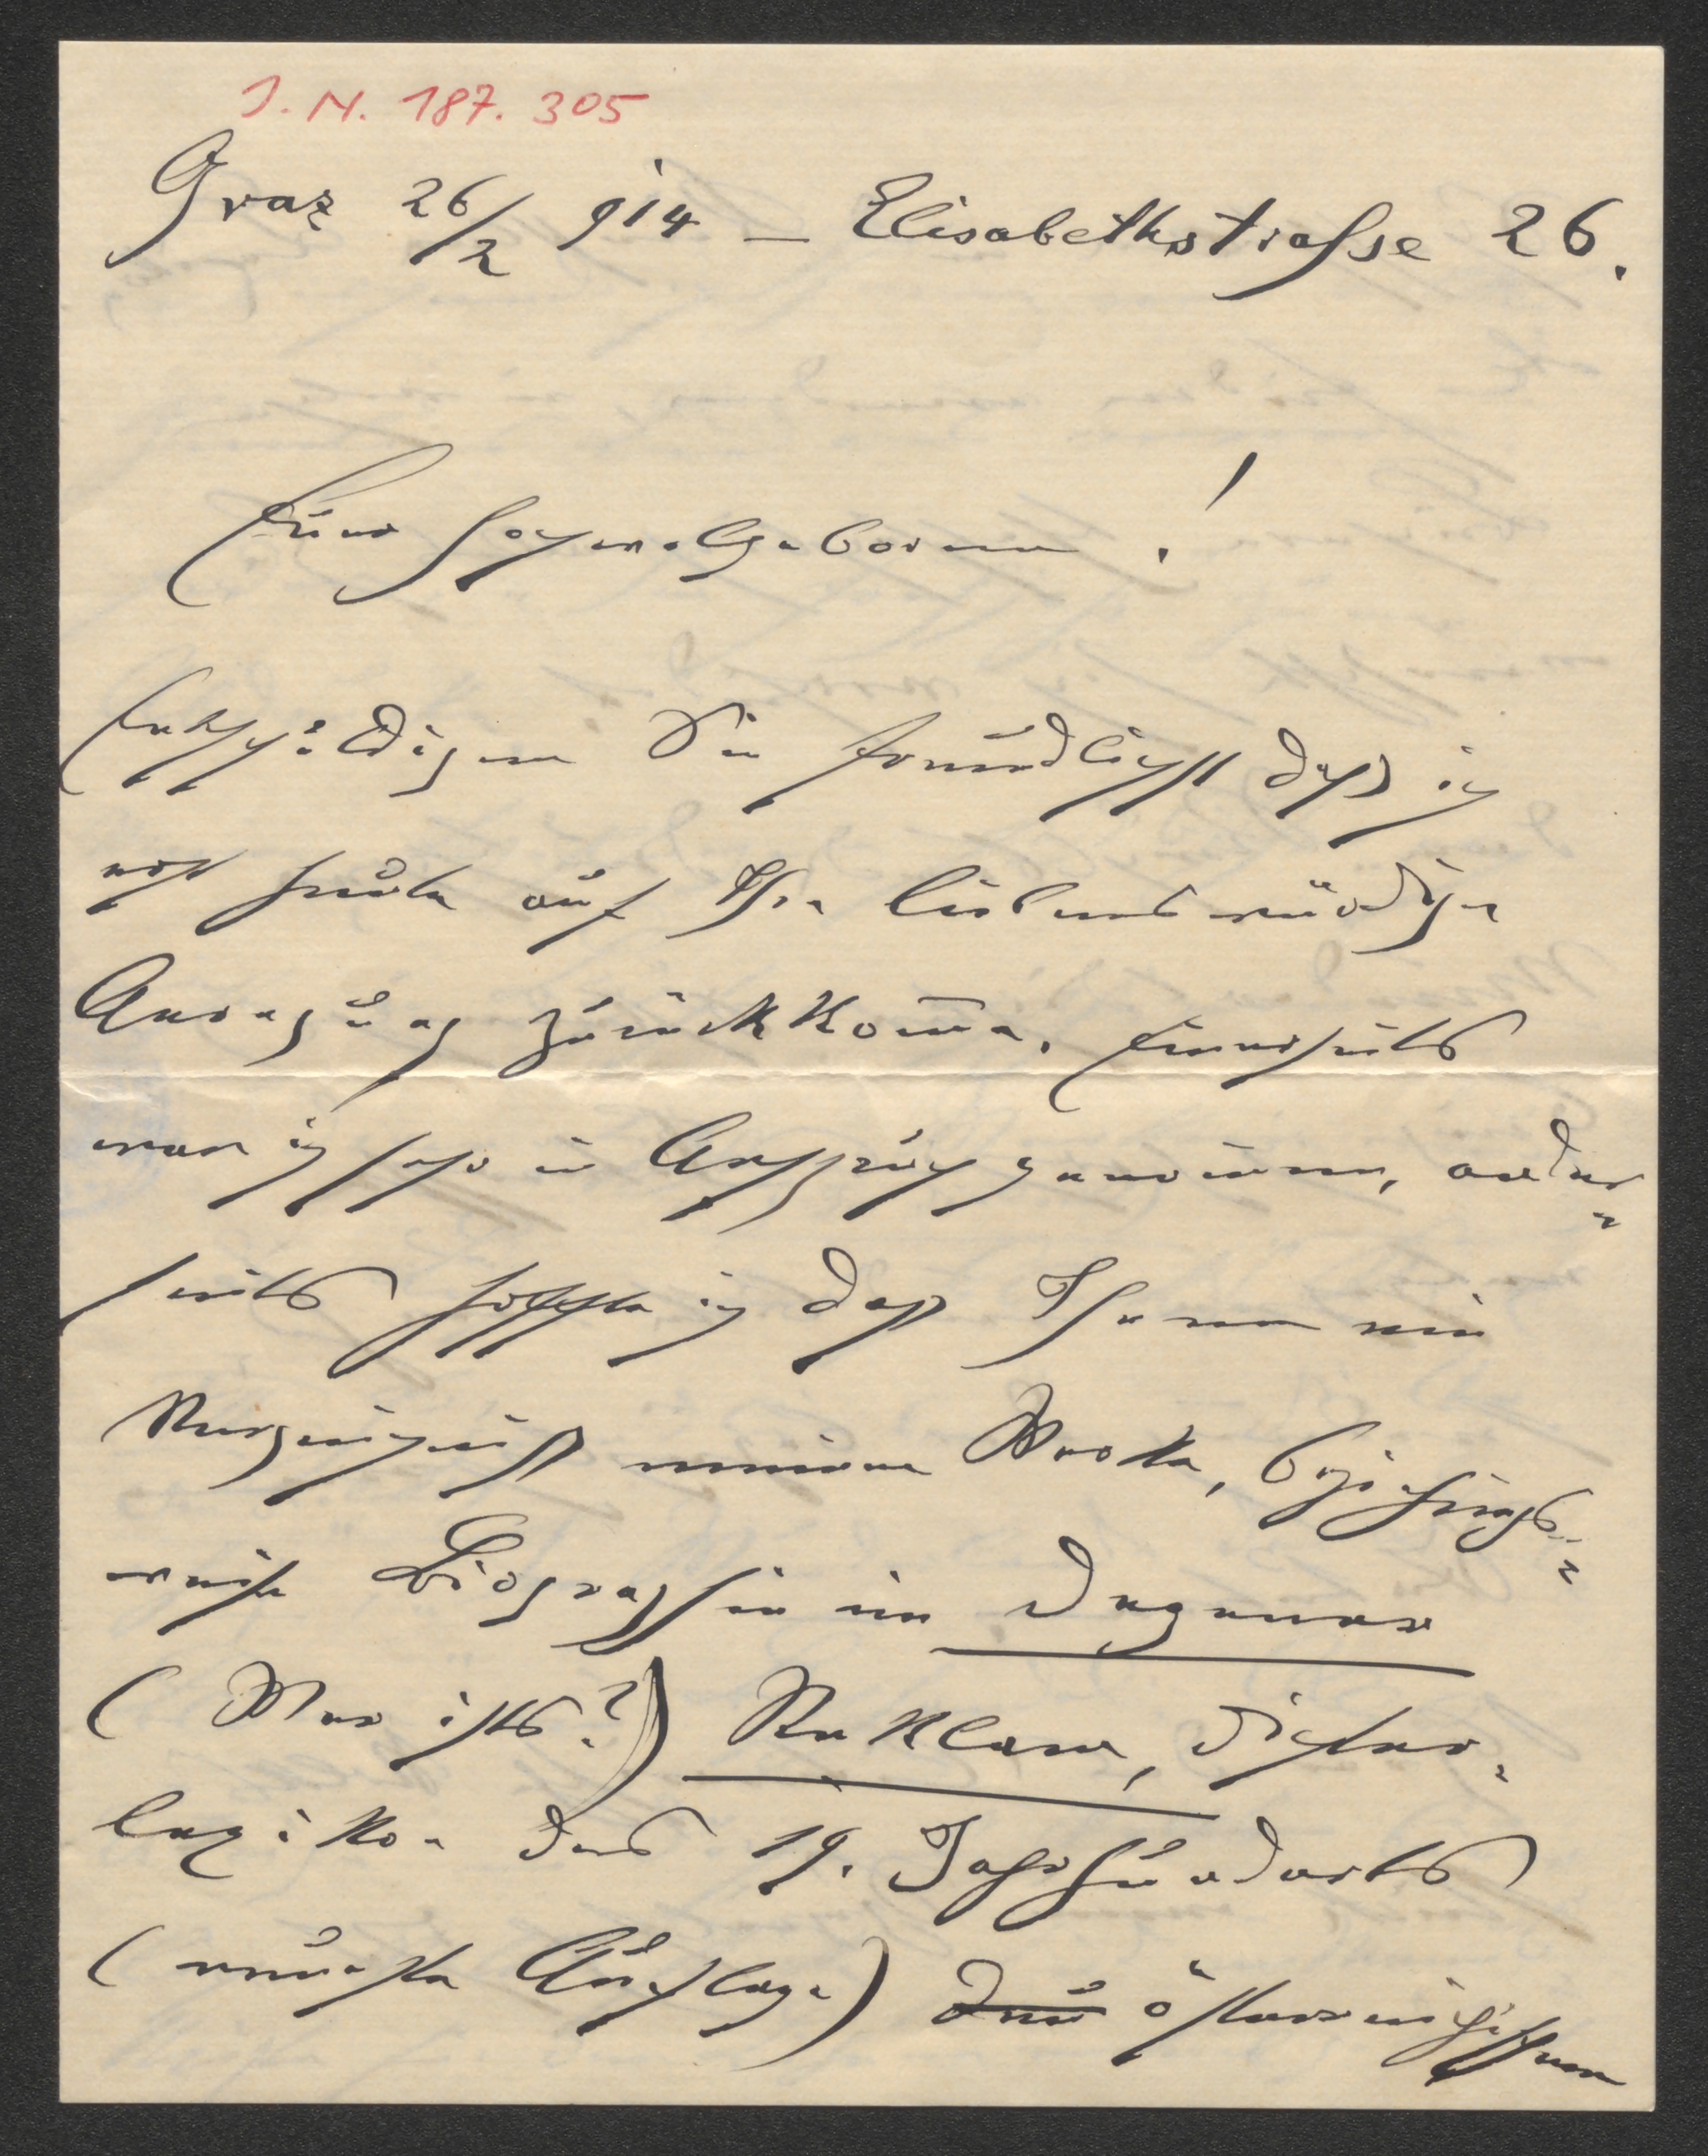 J. N. 187.305
Graz 26/2 914 – Elisabethstrasse 26.
Euer Hochwolgeboren!
Entschuldigen Sie freundlichst dass ich
erst heute auf Ihre liebenswürdige
Anregung zurückkom̄e. Einerseits
war ich sehr in Anspruch genom̄en, ander=
seits hoffte ich dass Ihnen ein
Verzeichniss meiner Werke, beziehungs=
weise Biographie im Degener
(Wer ists?) Reklam, Dichter=
lexikon des 19. Jahrhunderts
(neueste Auflage) den österreichischen